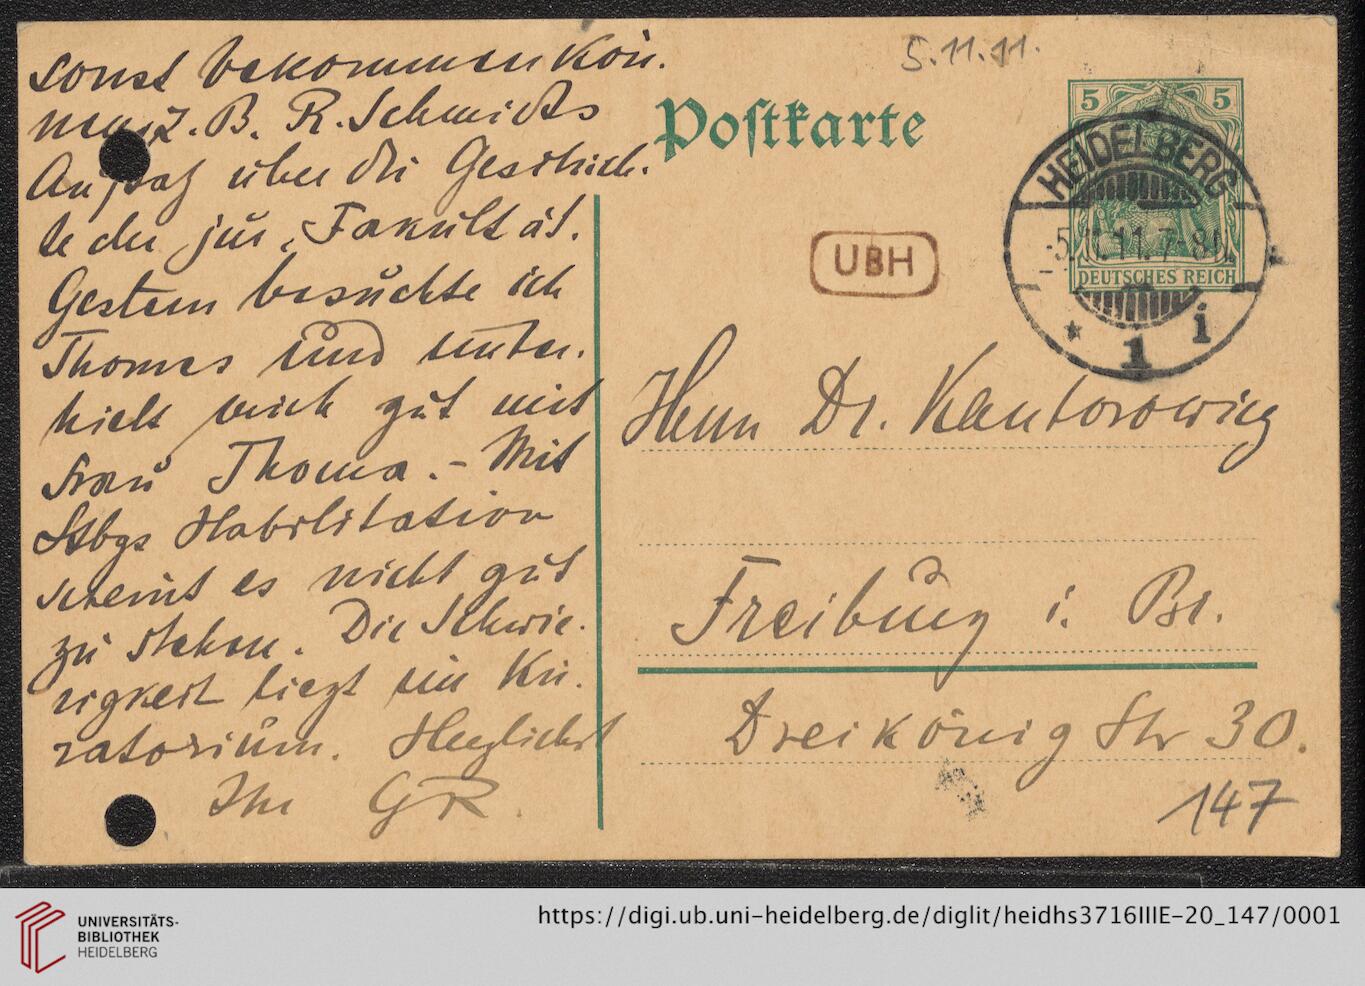 sonst bekommen kön.
nen, z. B. R. Schmidts
Aufsatz über die Geschich.
te der jur. Fakultät.
Gestern besuchte ich
Thomas und unter.
hielt mich gut mit
Frau Thoma. – Mit
Stbgs Habilitation
scheint es nicht gut
zu stehen. Die Schwie.
rigkeit liegt im Ku.
ratorium. Herzlichst
Ihr GR.
5.11.11.
Postkarte
5 5
DEUTSCHES REICH
HEIDELBERG
-5.11.11.7-8V.
* 1 i
UBH
Herrn Dr. Kantorowicz
Freiburg i. Br.
Dreikönig Str 30.
147
UNIVERSITÄTS-
BIBLIOTHEK
HEIDELBERG
https://digi.ub.uni-heidelberg.de/diglit/heidhs3716IIIE-20_147/0001